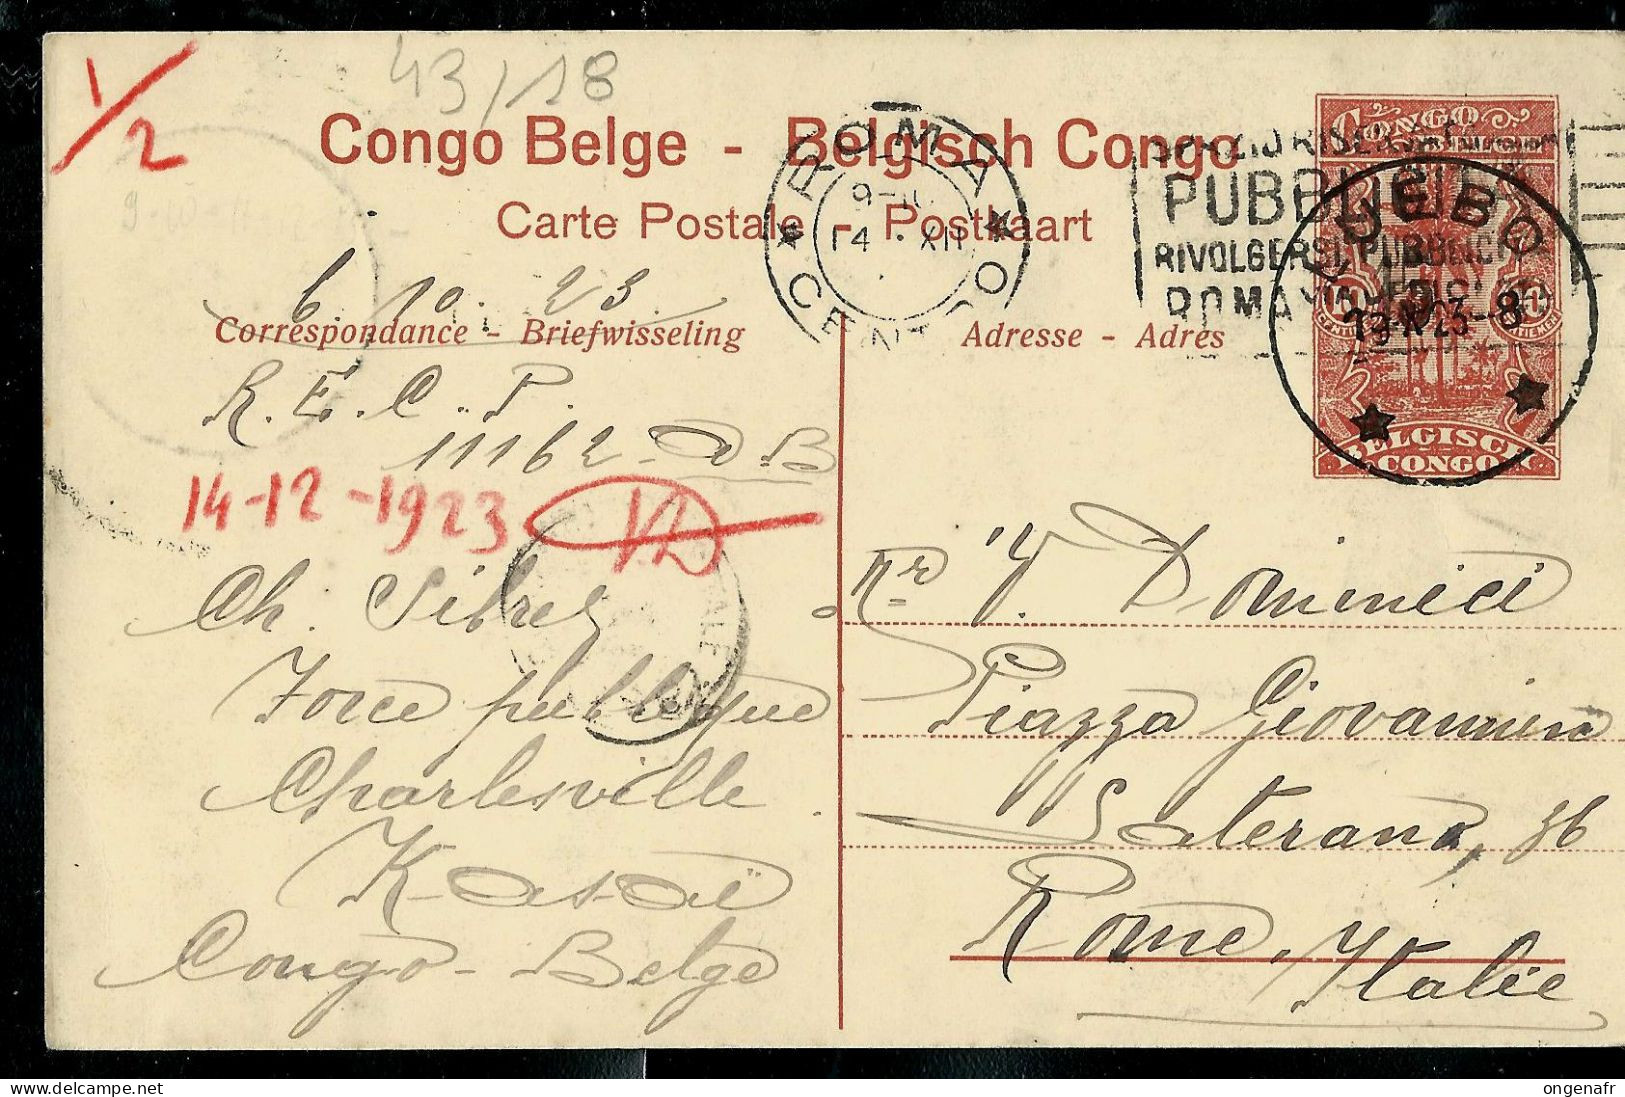 1/2
43/18
Congo Belge - Belgisch Congo
Carte Postale - Postkaart
ROMA
CENTRO
9-10
14 · XII
PUBBLICITÀ
RIVOLGERSI PUBBLICI
ROMA
CONGO
LUEBO
BELGISCH
CONGO
6. 10. 23
Correspondance - Briefwisseling
Adresse - Adres
R. E. C. P.
11162
14-12-1923
Ch. Sibret
Force publique
Charlesville
Kasaï
Congo-Belge
Mr V. Dominici
Piazza Giovanni in
Laterano, 36
Rome, Italie
ongenafr